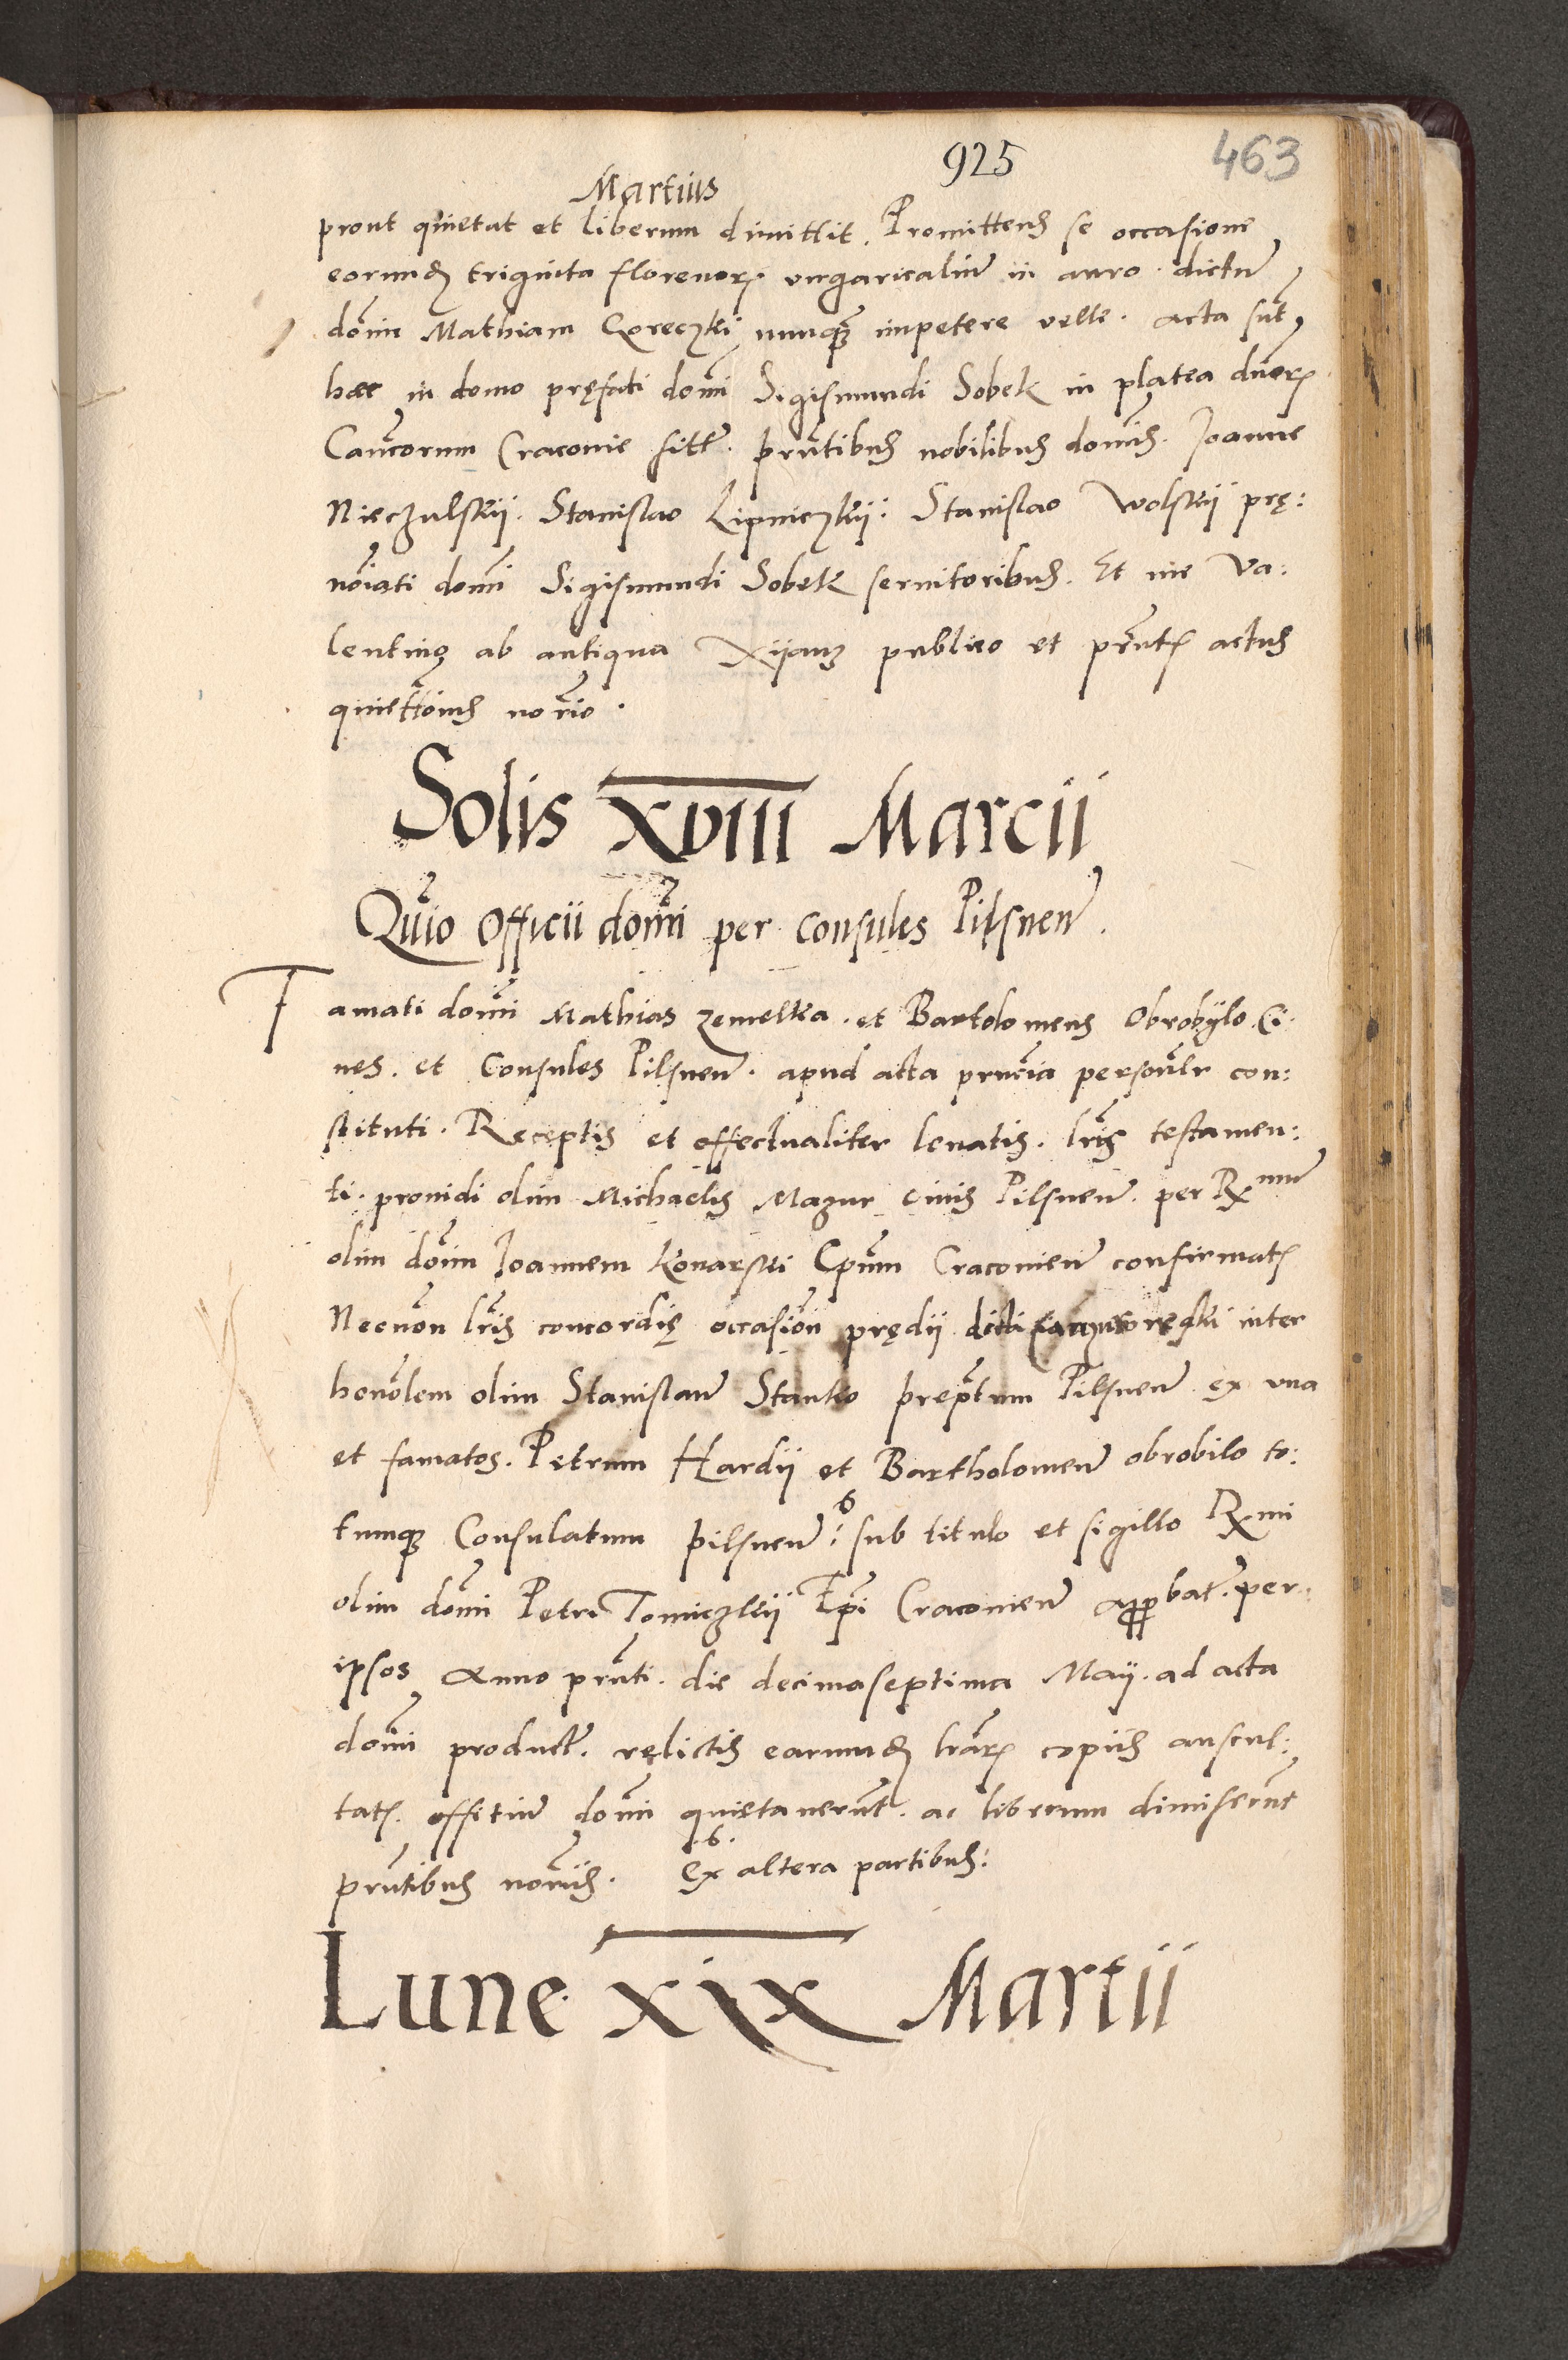 925
463
Martius
prout quietat et liberum dimittit. Promittens se occasione
eorundem triginta florenorum ungaricalium in auro. dictum
domin Mathiam Goreczki nunquam impetere velle. acta sunt
haec in domo pręfati domini Sigismundi Sobek in platea dnorum
Cancorum Cracovie sitt. pntibus nobilibus dominis. Joanne
Nieczulskij. Stanislao Lipniczkij. Stanislao Wolskij prę:
noiati domini Sigismundi Sobek servitoribus. Et me Va:
lentino ab antiqua publico et pntis actus
quiettionis notrio.
Solis XVIII Marcii
Quio Officii domini per consules Pilsnen.
Famati domini Mathias Zemelka. et Bartolomeus Obrobylo. Ci:
ves. et Consules Pilsnen. apud acta pnucia personalr con:
stituti. Receptis et effectualiter levatis. lris testamen:
ti. providi olim Michaelis Mazur civis Pilsnen. per Rmum
olim domin Joannem Konarski Epum Cracovien confirmat.
Necnon lris concordię occasion prędii dicti inter
honolem olim Stanislaum Stanko preptum Pilsnen ex una
et famatos. Petrum Hardij et Bartholomeum obrobilo to:
tumque Consulatum pilsnen: 6 sub titulo et sigillo Rmi
olim domini Petri Tomiczkij Epi Cracovien approbat. per
ipsos Anno pnti. die decimaseptima Maij. ad acta
domini product. relictis earundem lrarum copiis auscul:
tatis. offitium domini quietaverunt. ac liberum dimiserunt
.6.
pntibus notariis. Ex altera partibus:
Lune XIX Martii